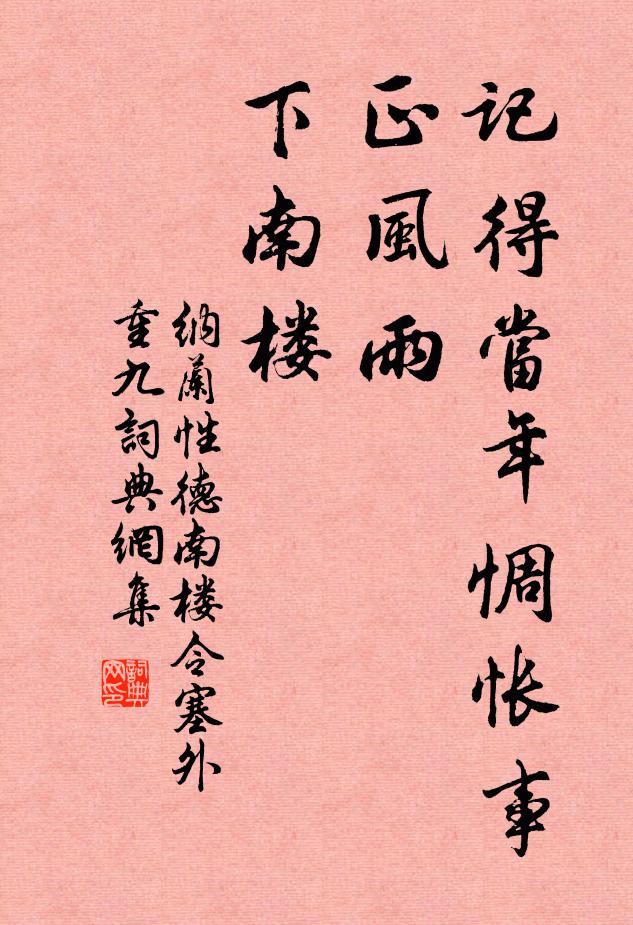 记得當年惆怅事
正風雨
下南楼
纳蘭性德南楼令塞外
重九詞典網集
詞典
网印